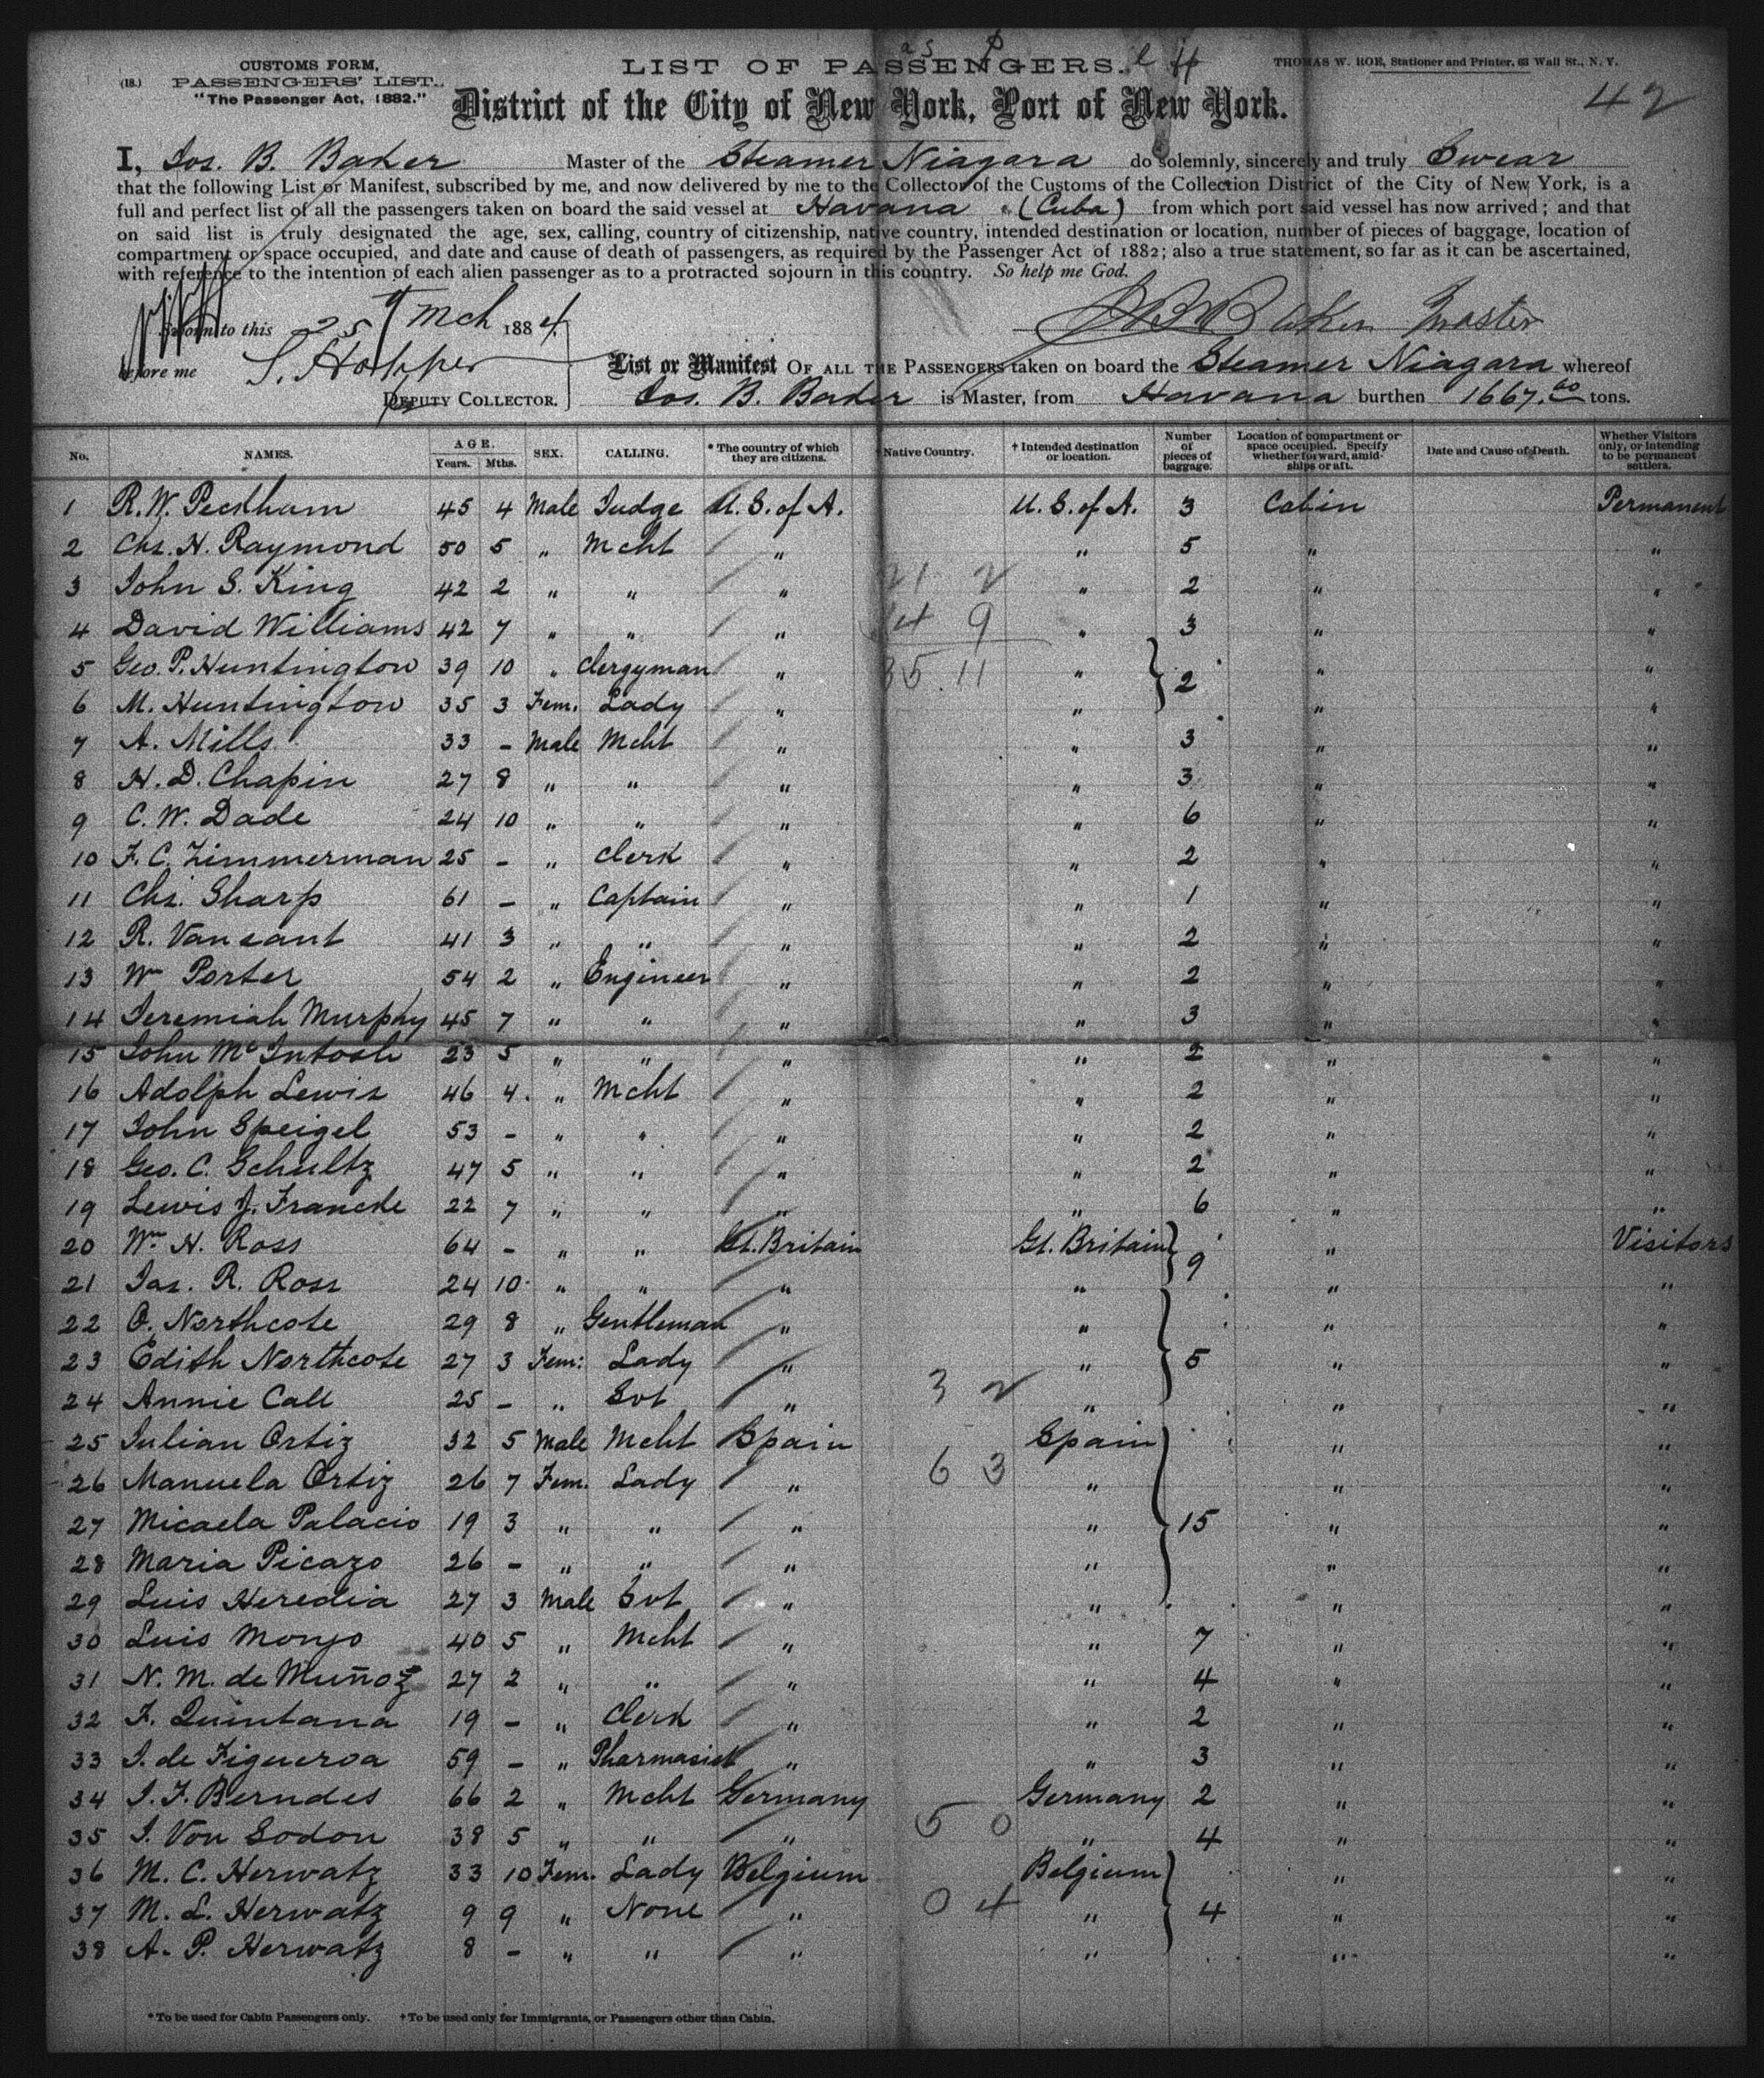 as p
CUSTOMS FORM,
(18.) PASSENGERS' LIST.
"The Passenger Act, 1882."
LIST OF PASSENGERS.
THOMAS W. ROE, Stationer and Printer, 63 Wall St., N. Y.
42
District of the City of New York, Port of New York.
I, Jos. B. Baker Master of the Steamer Niagara do solemnly, sincerely and truly Swear
that the following List or Manifest, subscribed by me, and now delivered by me to the Collector of the Customs of the Collection District of the City of New York, is a
full and perfect list of all the passengers taken on board the said vessel at Havana (Cuba) from which port said vessel has now arrived; and that
on said list is truly designated the age, sex, calling, country of citizenship, native country, intended destination or location, number of pieces of baggage, location of
compartment or space occupied, and date and cause of death of passengers, as required by the Passenger Act of 1882; also a true statement, so far as it can be ascertained,
with reference to the intention of each alien passenger as to a protracted sojourn in this country. So help me God.
Sworn to this 25 Mch 1884.
Baker Master
before me S. Hopper
DEPUTY COLLECTOR.
List or Manifest OF ALL THE PASSENGERS taken on board the Steamer Niagara whereof
Jos. B. Baker is Master, from Havana burthen 1667.60 tons.
No. NAMES. AGE. Years. Mths. SEX. CALLING. * The country of which they are citizens. Native Country. † Intended destination or location. Number of pieces of baggage. Location of compartment or space occupied. Specify whether forward, amidships or aft. Date and Cause of Death. Whether Visitors only, or intending to be permanent settlers.
1 R. W. Peckham 45 4 Male Judge U. S. of A. U. S. of A. 3 Cabin Permanent
2 Chs. H. Raymond 50 5 " Mcht " " 5 " "
3 John S. King 42 2 " " " 21 2 " 2 " "
4 David Williams 42 7 " " " 14 9 " 3 " "
5 Geo. P. Huntington 39 10 " Clergyman " 35 11 " 2 " "
6 M. Huntington 35 3 Fem. Lady " " " "
7 A. Mills 33 - Male Mcht " " 3 " "
8 H. D. Chapin 27 8 " " " " 3 " "
9 C. W. Dade 24 10 " " " " 6 " "
10 F. C. Zimmerman 25 - " Clerk " " 2 " "
11 Chs. Sharp 61 - " Captain " " 1 " "
12 R. Vansant 41 3 " " " " 2 " "
13 Wm Porter 54 2 " Engineer " " 2 " "
14 Jeremiah Murphy 45 7 " " " " 3 " "
15 John McIntosh 23 5 " " " " 2 " "
16 Adolph Lewis 46 4. " Mcht " " 2 " "
17 John Speigel 53 - " " " " 2 " "
18 Geo. C. Schultz 47 5 " " " " 2 " "
19 Lewis J. Francke 22 7 " " " " 6 " "
20 Wm. H. Ross 64 - " " Gt. Britain Gt. Britain 9 " Visitors
21 Jas. R. Ross 24 10 " " " " " "
22 O. Northcote 29 8 " Gentleman " " " "
23 Edith Northcote 27 3 Fem: Lady " " 5 " "
24 Annie Call 25 - " Svt " 3 2 " " "
25 Julian Ortiz 32 5 Male Mcht Spain Spain " "
26 Manuela Ortiz 26 7 Fem. Lady " 6 3 " " "
27 Micaela Palacio 19 3 " " " " 15 " "
28 Maria Picazo 26 - " " " " " "
29 Luis Heredia 27 3 Male Svt " " " "
30 Luis Monjo 40 5 " Mcht " " 7 " "
31 N. M. de Muñoz 27 2 " " " " 4 " "
32 F. Quintana 19 - " Clerk " " 2 " "
33 J. de Figueroa 59 - " Pharmasist " " 3 " "
34 J. F. Berndes 66 2 " Mcht Germany Germany 2 " "
35 J. Von Sodon 38 5 " " " 5 0 " 4 " "
36 M. C. Herwatz 33 10 Fem. Lady Belgium Belgium " "
37 M. L. Herwatz 9 9 " None " 0 4 " 4 " "
38 A. P. Herwatz 8 - " " " " " "
* To be used for Cabin Passengers only. † To be used only for Immigrants, or Passengers other than Cabin.